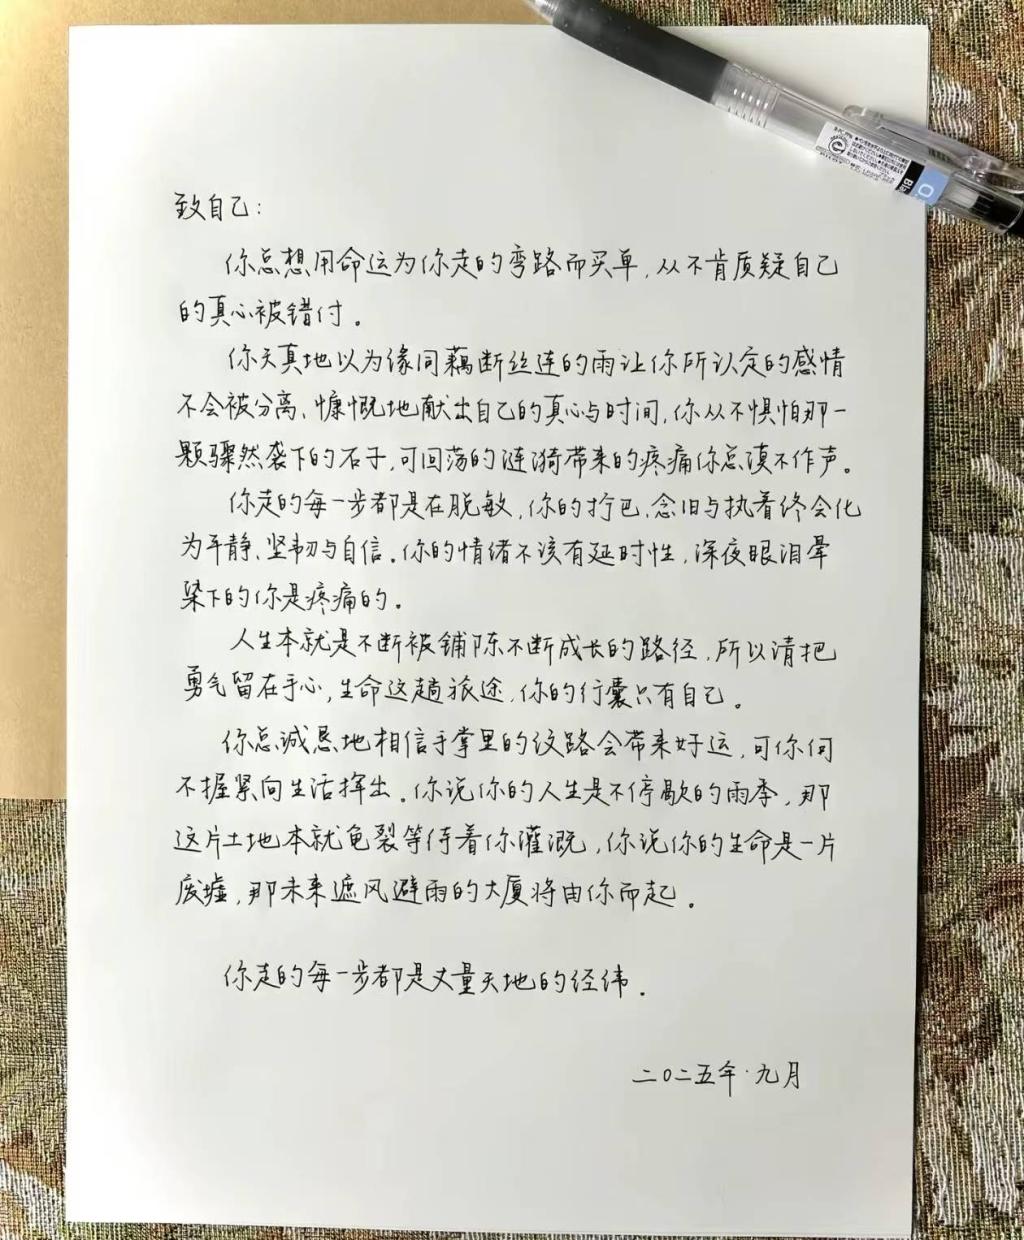 致自己：
你总想用命运为你走的弯路而买单，从不肯质疑自己
的真心被错付。
你天真地以为缘同藕断丝连的雨让你所认定的感情
不会被分离、慷慨地献出自己的真心与时间，你从不惧怕那一
颗骤然袭下的石子，可回荡的涟漪带来的疼痛你总漠不作声。
你走的每一步都是在脱敏，你的拧巴、念旧与执着终会化
为平静、坚韧与自信。你的情绪不该有延时性，深夜眼泪晕
染下的你是疼痛的。
人生本就是不断被铺陈不断成长的路径，所以请把
勇气留在手心，生命这趟旅途，你的行囊只有自己。
你总诚恳地相信手掌里的纹路会带来好运，可你何
不握紧向生活挥出。你说你的人生是不停歇的雨季，那
这片土地本就龟裂等待着你灌溉，你说你的生命是一片
废墟，那未来遮风避雨的大厦将由你而起。
你走的每一步都是丈量天地的经纬。
二〇二五年·九月